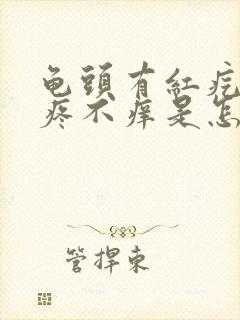 龟頭有紅疙
疼不痒是怎
管捍東